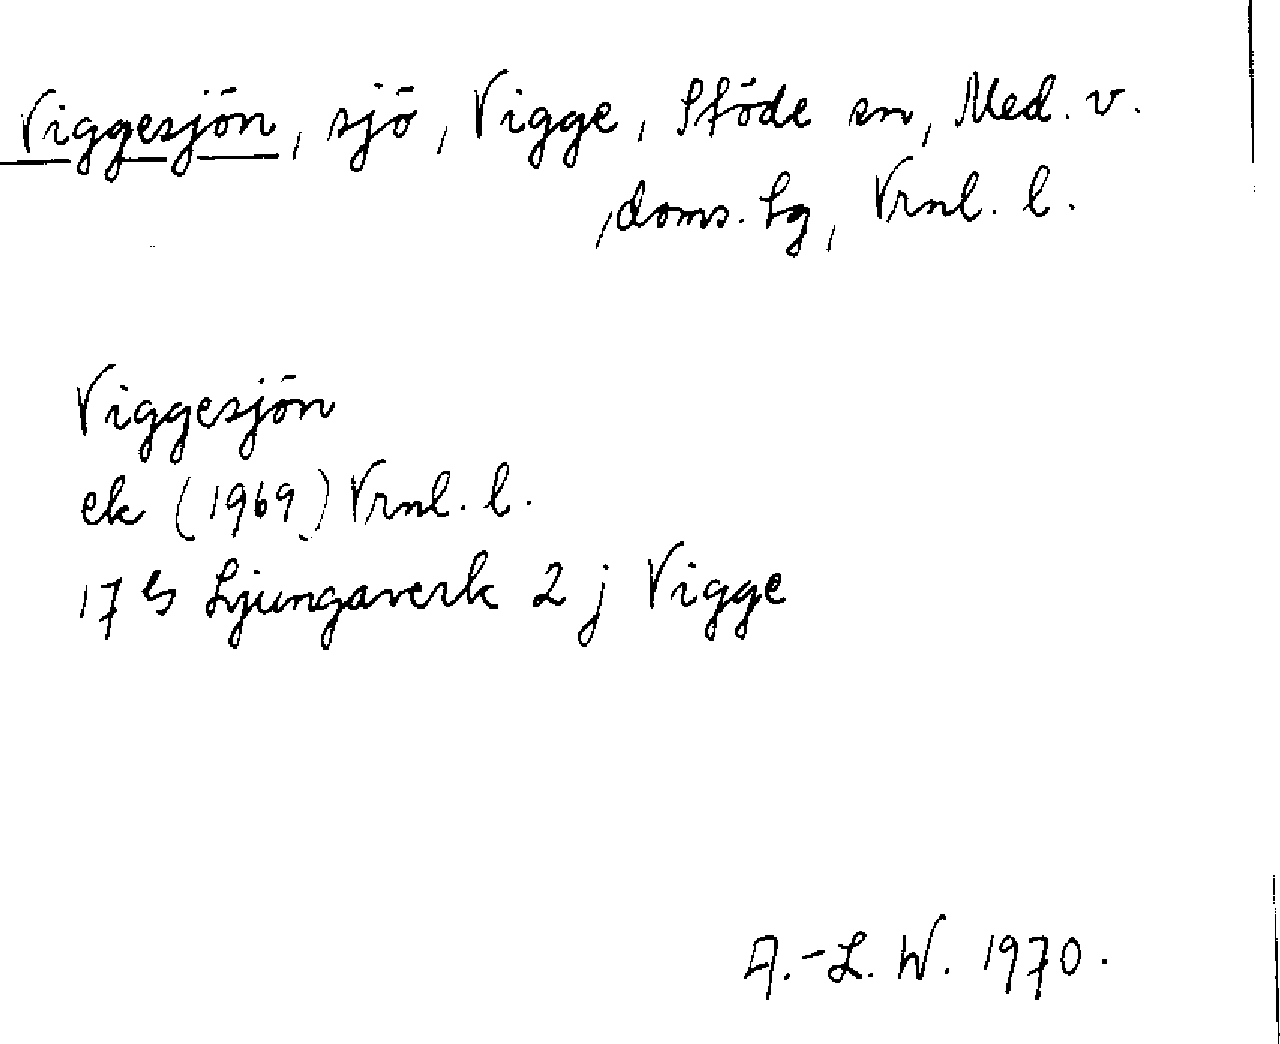 Viggesjön, sjö, Vigge, Stöde sn, Med. v.
doms. lg, Vrnl. l.
Viggesjön
ek (1969) Vrnl. l.
17 G Ljungaverk 2 j Vigge
A.-L. W. 1970.